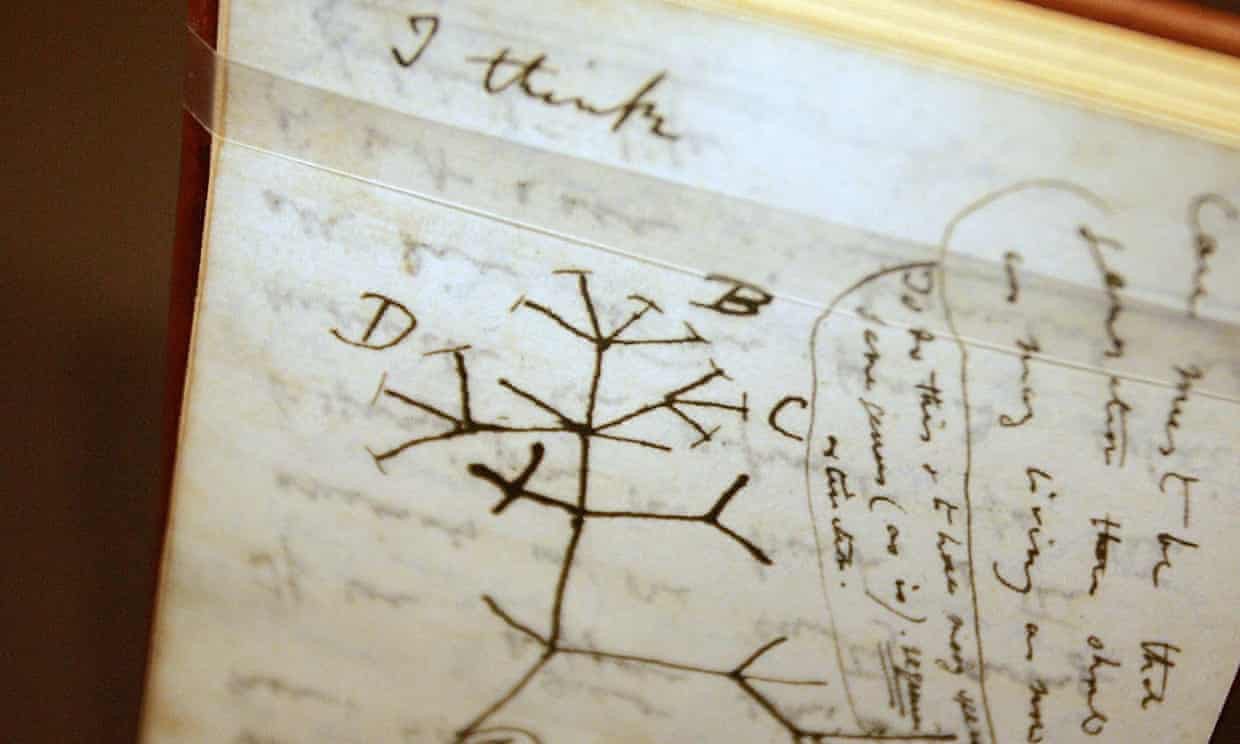 I think
D
B
C
Case must be that
generation then should
as many living as now
To do this & to have many
same genus (as is). requires
extinction.